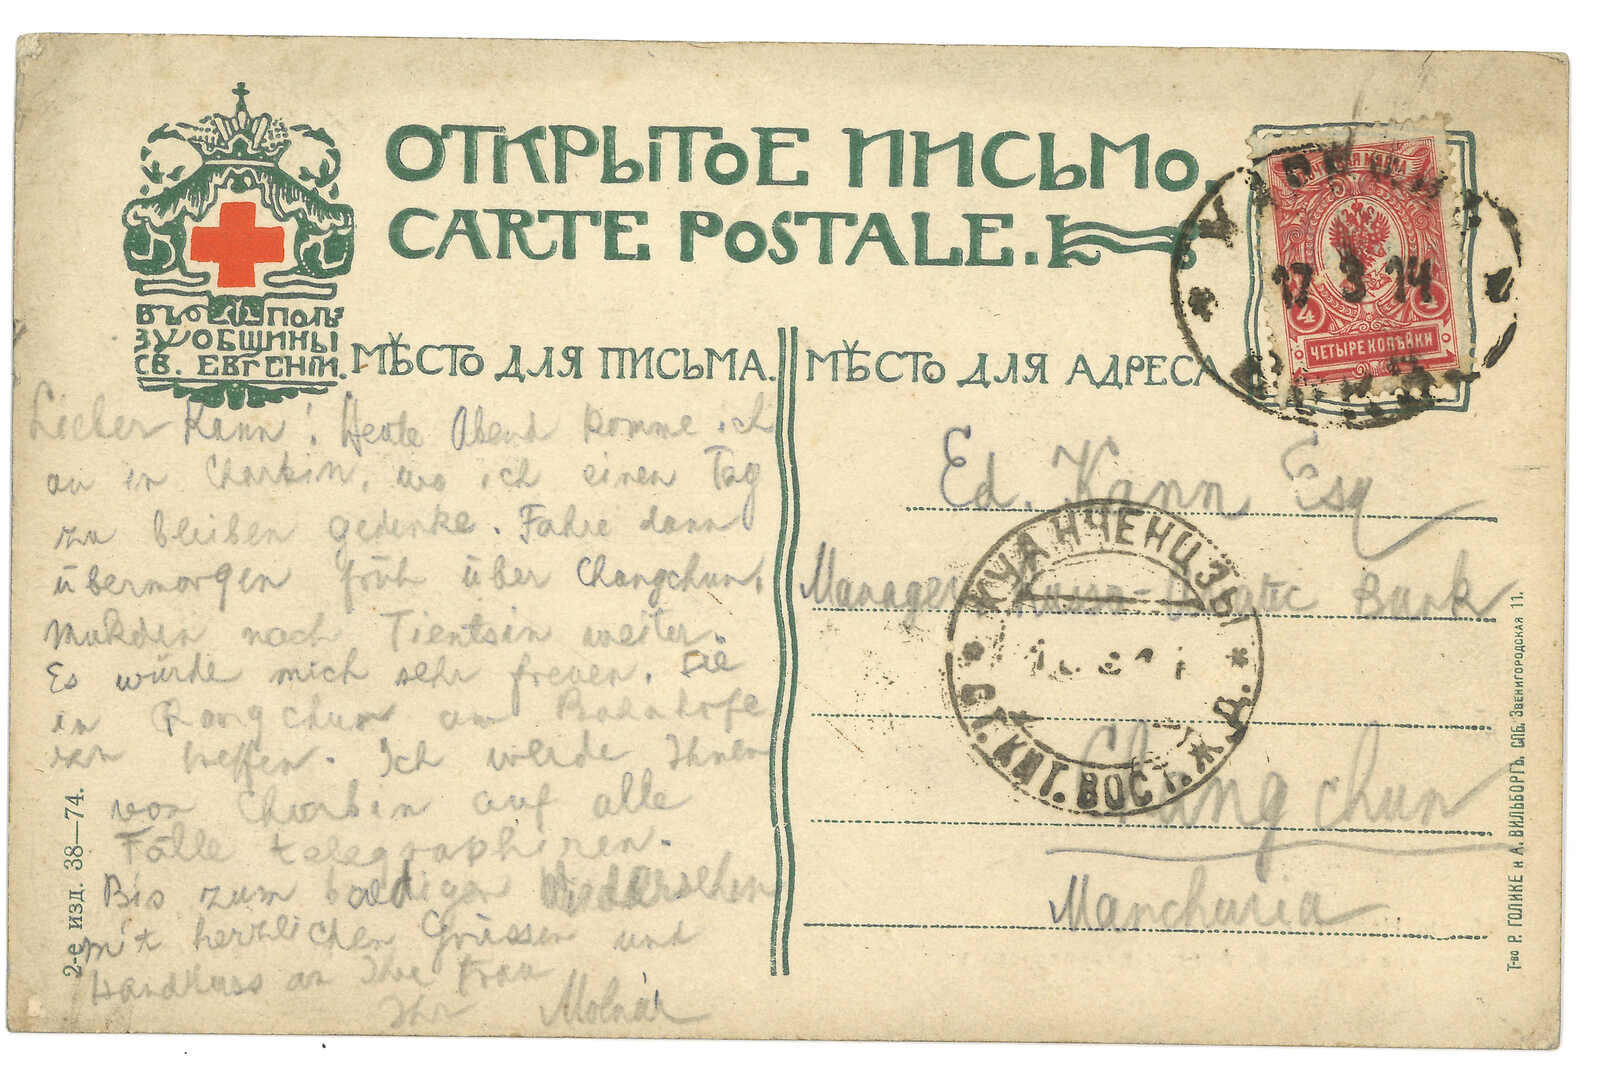 ОТКРЫТОЕ ПИСЬМО.
CARTE POSTALE.
ВЪ ПОЛЬ
ЗУ ОБЩИНЫ
СВ. ЕВГЕНІИ.
МѢСТО ДЛЯ ПИСЬМА.
МѢСТО ДЛЯ АДРЕСА
17 3 14
4 4
ЧЕТЫРЕ КОПѢЙКИ
Lieber Kann! Heute Abend komme ich
an in Charbin, wo ich einen Tag
zu bleiben gedenke. Fahre dann
übermorgen früh über Changchun,
Mukden nach Tientsin weiter.
Es würde mich sehr freuen, Sie
in Changchun am Bahnhofe
zu treffen. Ich werde Ihnen
von Charbin auf alle
Fälle telegraphiren.
Bis zum baldigen Wiedersehen
mit herzlichen Grüssen und
Handkuss an Ihre Frau
Ihr Molnár
Ed. Kann Esq
Manager Russo-Asiatic Bank
Changchun
Manchuria
КУАНЧЕНЦЗЫ
КИТ. ВОСТ. Ж. Д.
2-е изд. 38—74.
Т-во Р. ГОЛИКЕ и А. ВИЛЬБОРГЪ. СПБ. Звенигородская 11.